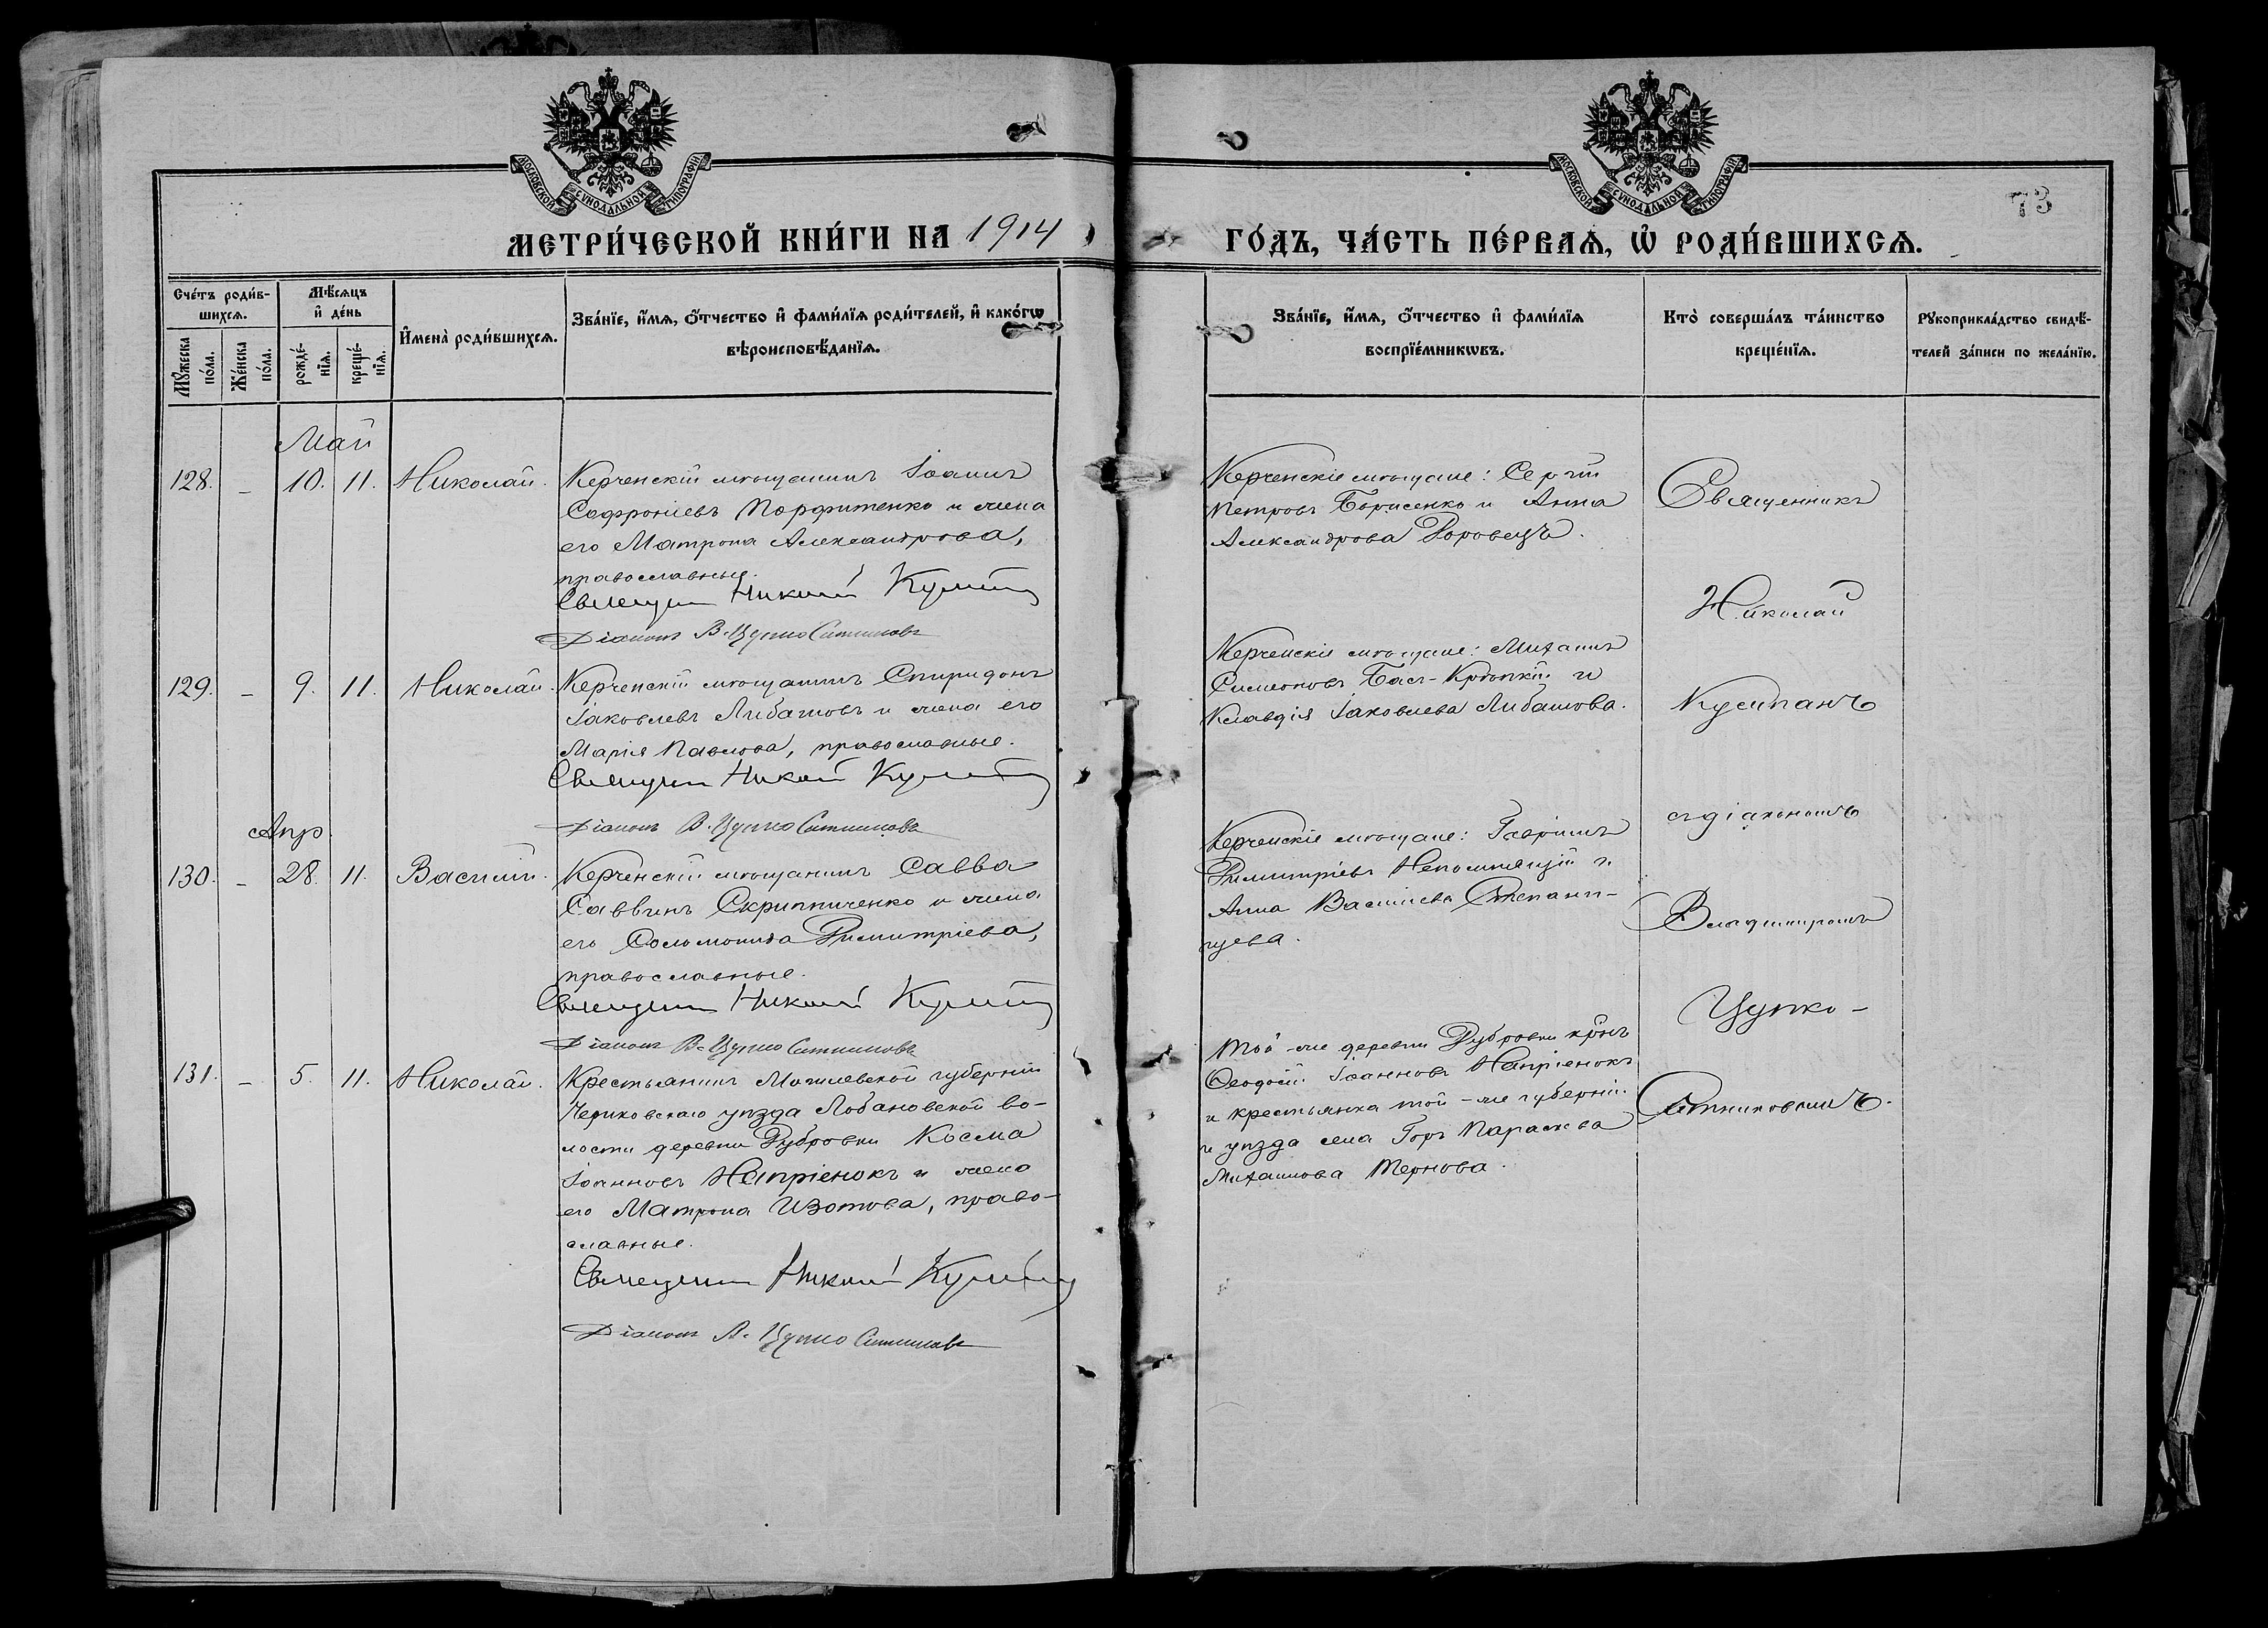 МОСКОВСКОЙ СѴНОДАЛЬНОЙ ТИПОГРАФІИ
МОСКОВСКОЙ СѴНОДАЛЬНОЙ ТИПОГРАФІИ
73
МЕТРИ́ЧЕСКОЙ КНИ́ГИ НА 1914
ГО́ДЪ, ЧА́СТЬ ПЕ́РВАѦ, Ѽ РОДИ́ВШИХСѦ.
Сче́тъ роди́в-
шихсѧ.
Мꙋ́жеска
по́ла.
Же́нска
по́ла.
Мѣ́сѧцъ
и҆ де́нь
рожде́-
нїѧ.
креще́-
нїѧ.
И҆мена̀ роди́вшихсѧ.
Зва́нїе, и҆́мѧ, ѻ҆́тчество и҆ фами́лїѧ роди́телей, и҆ како́гѡ
вѣроисповѣ́данїѧ.
Зва́нїе, и҆́мѧ, ѻ҆́тчество и҆ фами́лїѧ
воспрїе́мникѡвъ.
Кто̀ соверша́лъ та́инство
креще́нїѧ.
Рꙋкоприкла́дство свидѣ́-
телей за́писи по жела́нїю.
Май
128. – 10. 11. Николай.
Керченскій мѣщанинъ Іоаннъ
Софроніевъ Порфитенко и жена
его Матрона Александрова,
православные.
Священн Николай Кумпан
Діаконъ В. Цупко Ситниковъ
Керченскіе мѣщане: Сергій
Петровъ Борисенко и Анна
Александрова
129. – 9. 11. Николай.
Керченскій мѣщанинъ Спиридонъ
Іаковлевъ Либашовъ и жена его
Марія Павлова, православные.
Священн Николай Кумпан
Діаконъ В. Цупко Ситниковъ
Керченскіе мѣщане: Михаилъ
Симеоновъ и
Клавдія Іаковлева Либашова.
Апр.
130. – 28. 11. Василій.
Керченскій мѣщанинъ Савва
Саввинъ Скрипниченко и жена
его Соломонида Димитріева,
православные.
Священн Николай Кумпан
Діаконъ В. Цупко Ситниковъ
Керченскіе мѣщане: Гавріилъ
Димитріевъ Непомнящій и
Анна Васильева Степан-
цева.
131. – 5. 11. Николай.
Крестьянинъ Могилевской губерніи
Чериковскаго уѣзда Лобановской во-
лости деревни Дубровки Косма
Іоанновъ Напріенокъ и жена
его Матрона Изотова, право-
славные.
Священн Николай Кумпан
Діаконъ В. Цупко Ситниковъ
Той-же деревни Дубровки кр-нъ
Ѳеодосій Іоанновъ Напріенокъ
и крестьянка той-же губерніи
и уѣзда села Горъ Параскева
Михаилова Тернова.
Священникъ
Николай
Кумпанъ
съ діакономъ
Владимиромъ
Цупко-
Ситниковымъ.